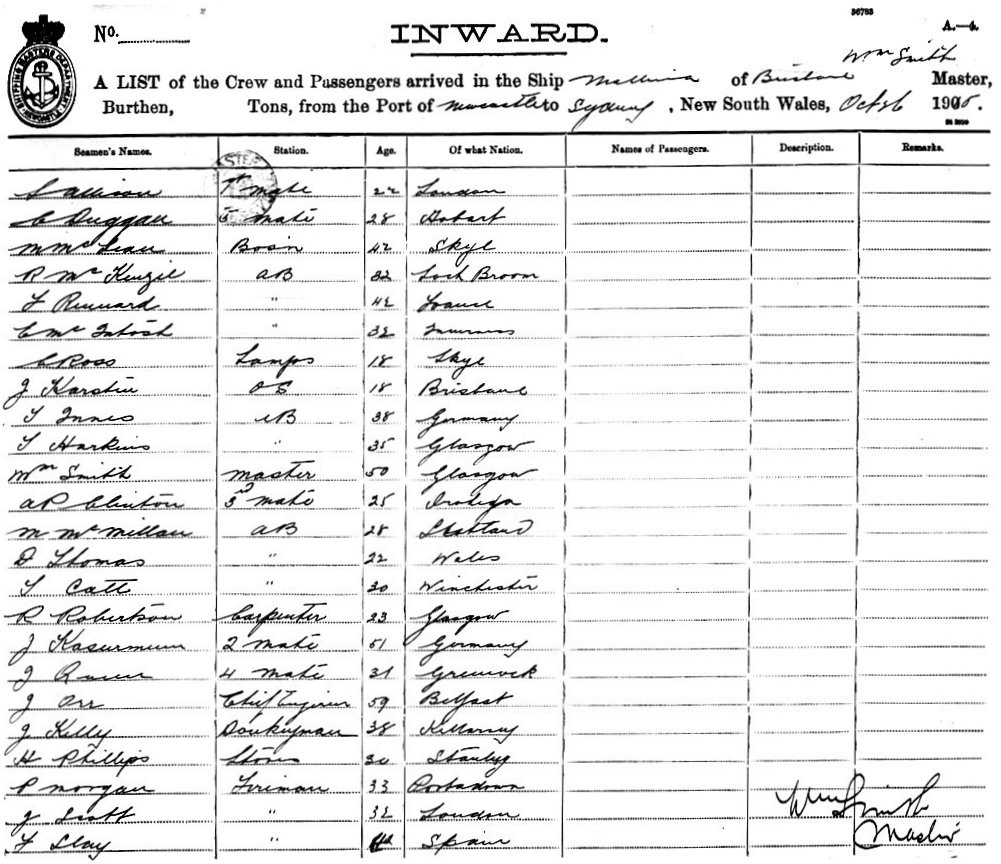 36783
No. INWARD. A.—4.
Wm Smith
A LIST of the Crew and Passengers arrived in the Ship of Brisbane Master,
Burthen, Tons, from the Port of Newcastle to Sydney, New South Wales, Octr 6 1905.
Seamen's Names. Station. Age. Of what Nation. Names of Passengers. Description. Remarks.
S Allison 1st mate London
C Duggan 5 mate 28 Hobart
M McLean Bosn 42 Skye
R McKenzie AB 32 Loch Broom
F " 42
C McIntosh " 32 Inverness
C Ross Lamps 18 Skye
J OS 18 Brisbane
T Innes AB 38 Germany
T Harkins " 35 Glasgow
Wm Smith Master 50 Glasgow
A P Clinton 3rd mate 25
M McMillan AB 28 Scotland
D Thomas " 22 Wales
T Catt " 30 Winchester
R Robertson Carpenter 23 Glasgow
J 2 mate 51 Germany
J 4 mate 31 Greenock
J Orr Chief Engineer 59 Belfast
J Kelly Donkeyman 38 Killarney
H Phillips Stores 30 Stanley
P Morgan Fireman 33 Portadown
J Scott " 32 London
F " Spain
Wm Smith
Master